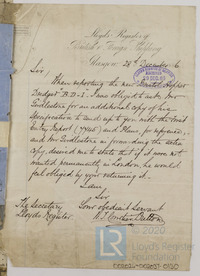 Lloyd's Register of
British & Foreign Shipping
Glasgow 28th December
Sir,
When reporting the new Hopper
Budget B.D.I. I was obliged to ask Mr
for an additional copy of his
specification to send up to you with the First
Entry Report (7945) and Plans, for reference,
and Mr in forwarding the extra
Copy, desired me to state that if it were not
wanted permanently in London, he would
feel obliged by your returning it.
I am,
Sir
Your obedient Servant
The Secretary
Lloyd's Register.
© 2020
Lloyd's Register
Foundation